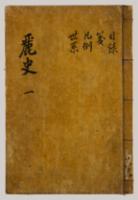 目錄
箋
凡例
世系
麗史 一